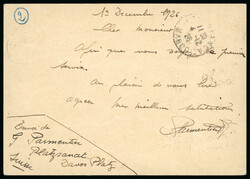 2
1er Decembre 1926
Cher Monsieur
Afin que vous
service.
Au plaisir de vous lire
agréez mes meilleures salutations
Parmentier
Envoi de
G Parmentier
Platzsanat
Davos Platz
Suisse